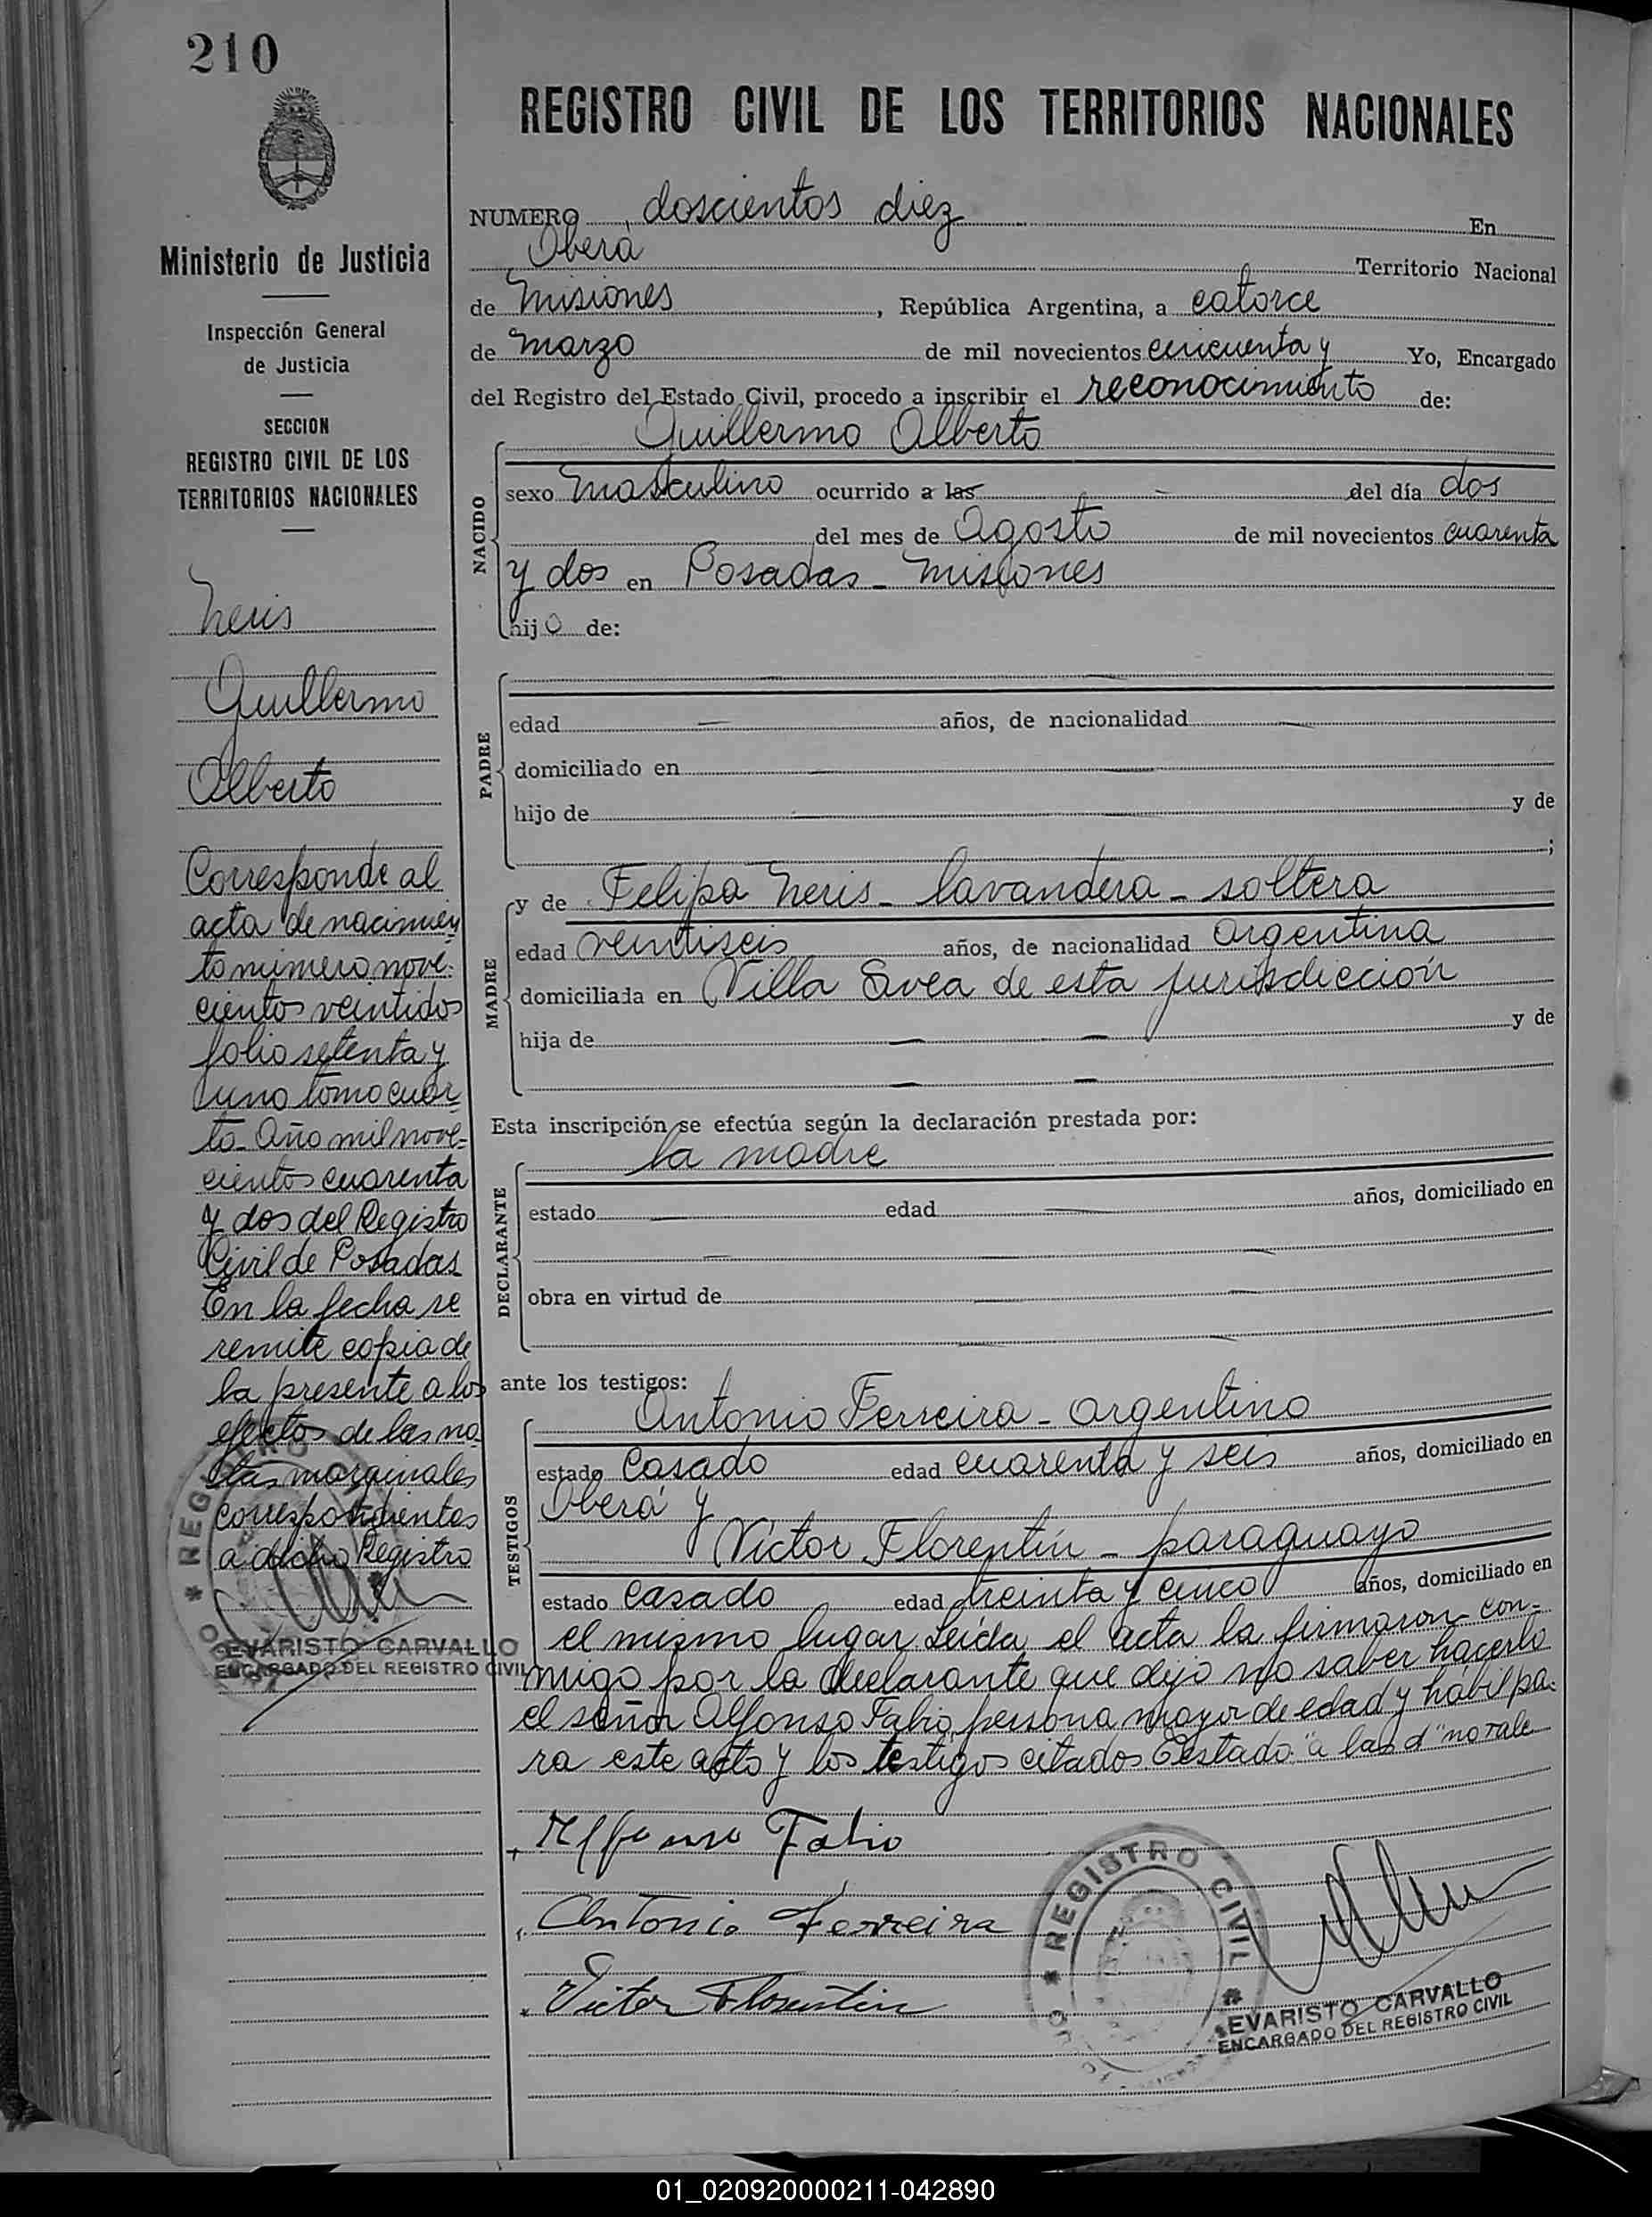 210
REGISTRO CIVIL DE LOS TERRITORIOS NACIONALES
Ministerio de Justicia
Inspección General
de Justicia
SECCION
REGISTRO CIVIL DE LOS
TERRITORIOS NACIONALES
Neris
Guillermo
Alberto
Corresponde al
acta de nacimien
to número nove-
cientos veintidos
folio setenta y
uno tomo cuar-
to. Año mil nove-
cientos cuarenta
y dos del Registro
Civil de Posadas
En la fecha se
remite copia de
la presente a los
efectos de las no
tas marginales
correspondientes
a dicho Registro
EVARISTO CARVALLO
ENCARGADO DEL REGISTRO CIVIL
NUMERO doscientos diez En
Oberá Territorio Nacional
de Misiones, República Argentina, a catorce
de Marzo de mil novecientos cincuenta y Yo, Encargado
del Registro del Estado Civil, procedo a inscribir el reconocimiento de:
Guillermo Alberto
NACIDO
sexo Masculino ocurrido a las del día dos
del mes de Agosto de mil novecientos cuarenta
y dos en Posadas - Misiones
hijo de:
PADRE
edad años, de nacionalidad
domiciliado en
hijo de y de
;
MADRE
y de Felipa Neris - lavandera - soltera
edad veintiseis años, de nacionalidad Argentina
domiciliada en Villa Svea de esta jurisdicción
hija de y de
Esta inscripción se efectúa según la declaración prestada por:
la madre
DECLARANTE
estado edad años, domiciliado en
obra en virtud de
ante los testigos:
TESTIGOS
Antonio Ferreira - argentino
estado Casado edad cuarenta y seis años, domiciliado en
Oberá y
Víctor Florentín - paraguayo
estado casado edad treinta y cinco años, domiciliado en
el mismo lugar. Leída el acta la firmaron con-
migo por la declarante que dijo no saber hacerlo
el señor Alfonso Fabio persona mayor de edad y hábil pa-
ra este acto y los testigos citados. "a las d" no vale
Alfonso Fabio
Antonio Ferreira
Victor Florentin
REGISTRO CIVIL
EVARISTO CARVALLO
ENCARGADO DEL REGISTRO CIVIL
01_020920000211-042890